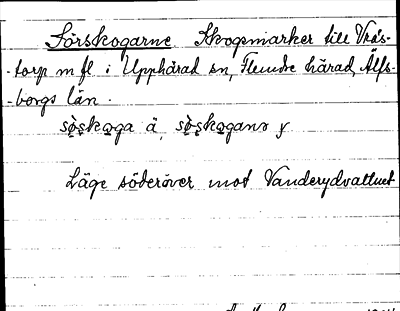 Sörskogarne Skogsmarker till Vräs-
-torp m fl i Upphärad sn, Flundre härad, Älfs-
-borgs län.
sö̀skoga ä, sö̀skogana y
Läge söderöver mot Vanderydvattnet